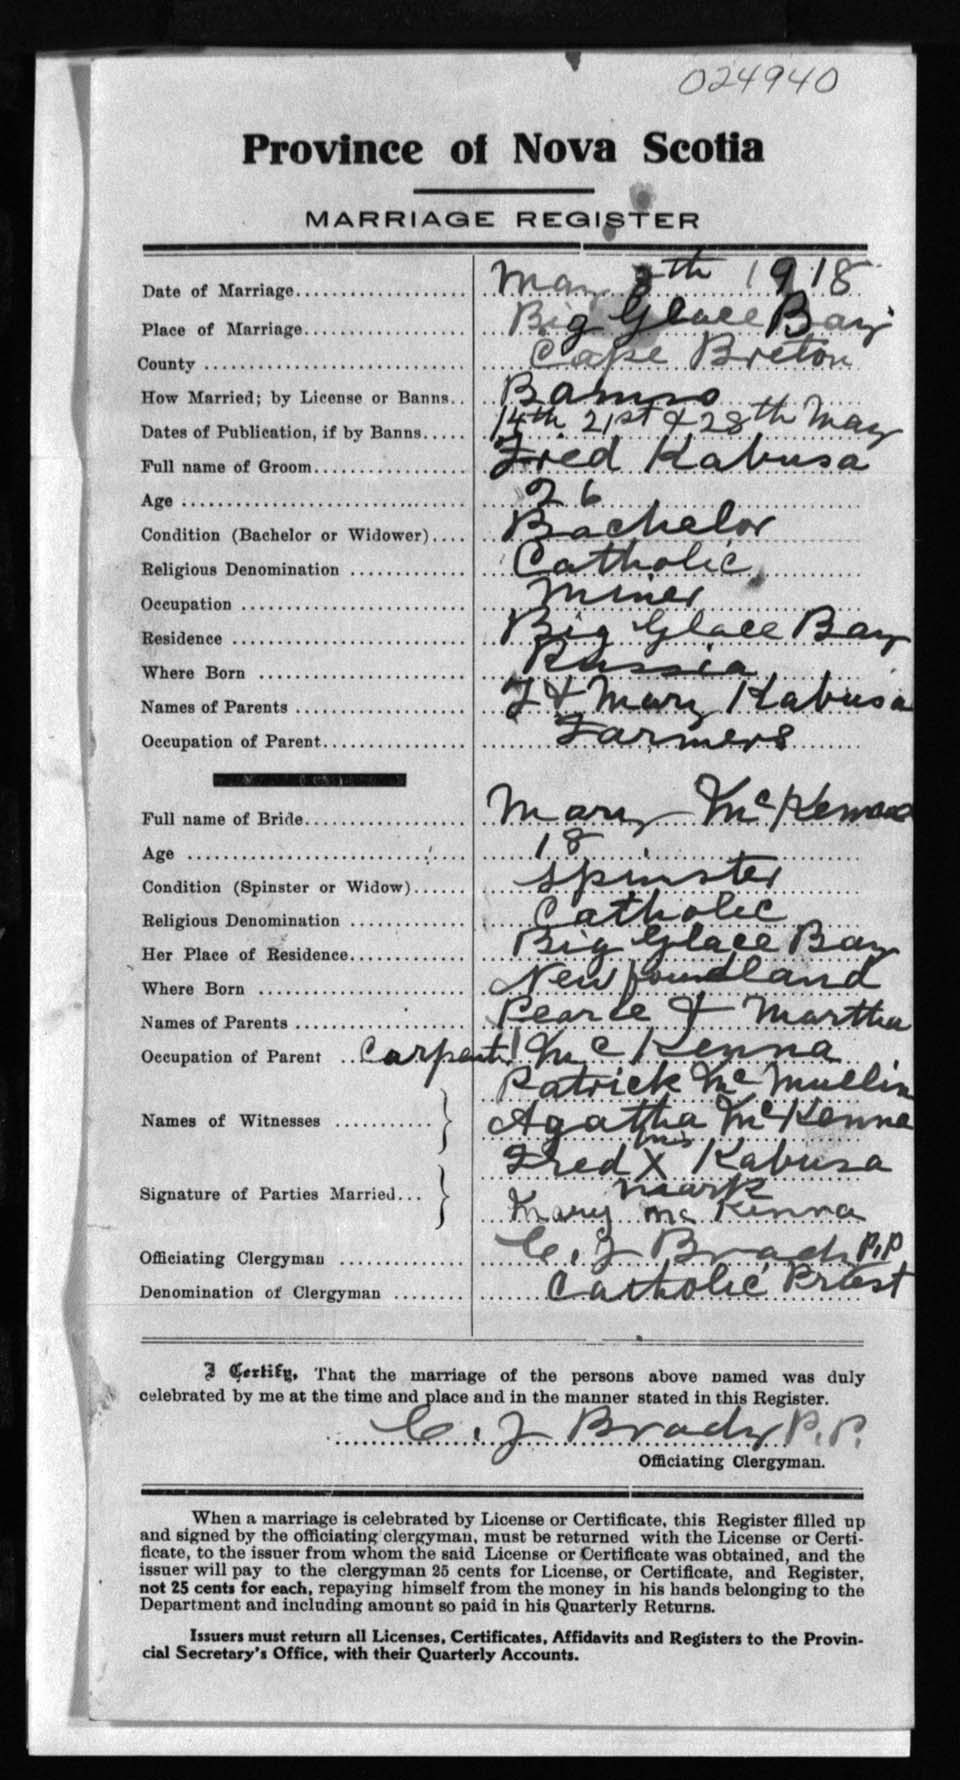 024940
Province of Nova Scotia
MARRIAGE REGISTER
Date of Marriage.................... May 8th 1918
Place of Marriage................... Big Glace Bay
County ............................. Cape Breton
How Married; by License or Banns.. Banns
Dates of Publication, if by Banns..... 14th 21st & 28th May
Full name of Groom.................. Fred Kabusa
Age ................................ 26
Condition (Bachelor or Widower).... Bachelor
Religious Denomination ............. Catholic
Occupation ......................... Miner
Residence .......................... Big Glace Bay
Where Born ......................... Russia
Names of Parents ................... F & Mary Kabusa
Occupation of Parent................ Farmers
Full name of Bride.................. Mary McKenna
Age ................................ 18
Condition (Spinster or Widow)...... Spinster
Religious Denomination ............. Catholic
Her Place of Residence.............. Big Glace Bay
Where Born ......................... Newfoundland
Names of Parents ................... Pearce & Martha
Occupation of Parent .. Carpenter McKenna
Patrick McMullin
Names of Witnesses ........... Agatha McKenna
Fred his X mark Kabusa
Signature of Parties Married...
Mary McKenna
Officiating Clergyman .............. C. J Brady P.P
Denomination of Clergyman ........ Catholic Priest
I Certify, That the marriage of the persons above named was duly
celebrated by me at the time and place and in the manner stated in this Register.
C. J Brady P.P.
Officiating Clergyman.
When a marriage is celebrated by License or Certificate, this Register filled up
and signed by the officiating clergyman, must be returned with the License or Certi-
ficate, to the issuer from whom the said License or Certificate was obtained, and the
issuer will pay to the clergyman 25 cents for License, or Certificate, and Register,
not 25 cents for each, repaying himself from the money in his hands belonging to the
Department and including amount so paid in his Quarterly Returns.
Issuers must return all Licenses, Certificates, Affidavits and Registers to the Provin-
cial Secretary's Office, with their Quarterly Accounts.